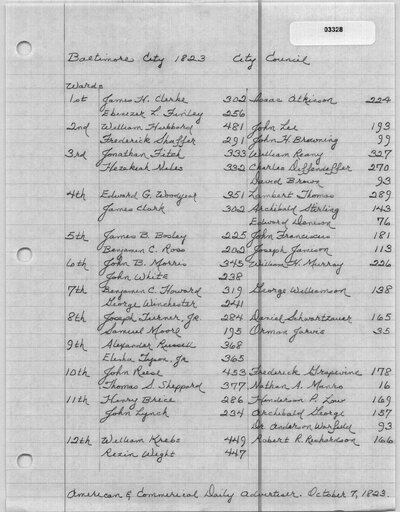 03328
Baltimore City 1823 City Council
Wards
1st James H. Clarke 302 Isaac Atkinson 224
Ebenezer L. Finley 256
2nd William Hubbard 481 John Lee 193
Frederick Shaffer 291 John H. Browning 99
3rd Jonathan Fitch 333 William Reany 327
Hezekiah Niles 332 Charles Diffenderffer 270
David Brown 93
4th Edward G. Woodyear 351 Lambert Thomas 289
James Clark 302 Archibald Stirling 143
Edward Denison 76
5th James B. Bosley 225 John Franciscus 181
Benjamin C. Ross 202 Joseph Jamison 113
6th John B. Morris 345 William H. Murray 226
John White 238
7th Benjamin C. Howard 319 George Williamson 138
George Winchester 241
8th Joseph Turner, Jr. 284 Daniel Schwartzauer 165
Samuel Moore 195 Orman Jarvis 35
9th Alexander Russell 368
Elisha Tyson, Jr 365
10th John Reese 453 Frederick Grapevine 178
Thomas S. Sheppard 377 Nathan A. Munro 16
11th Henry Brice 286 Henderson P. Low 169
John Lynch 234 Archibald George 157
Dr Anderson Warfield 93
12th William Krebs 449 Robert R. Richardson 166
Rezin Wight 447
American & Commercial Daily Advertiser. October 7, 1823.